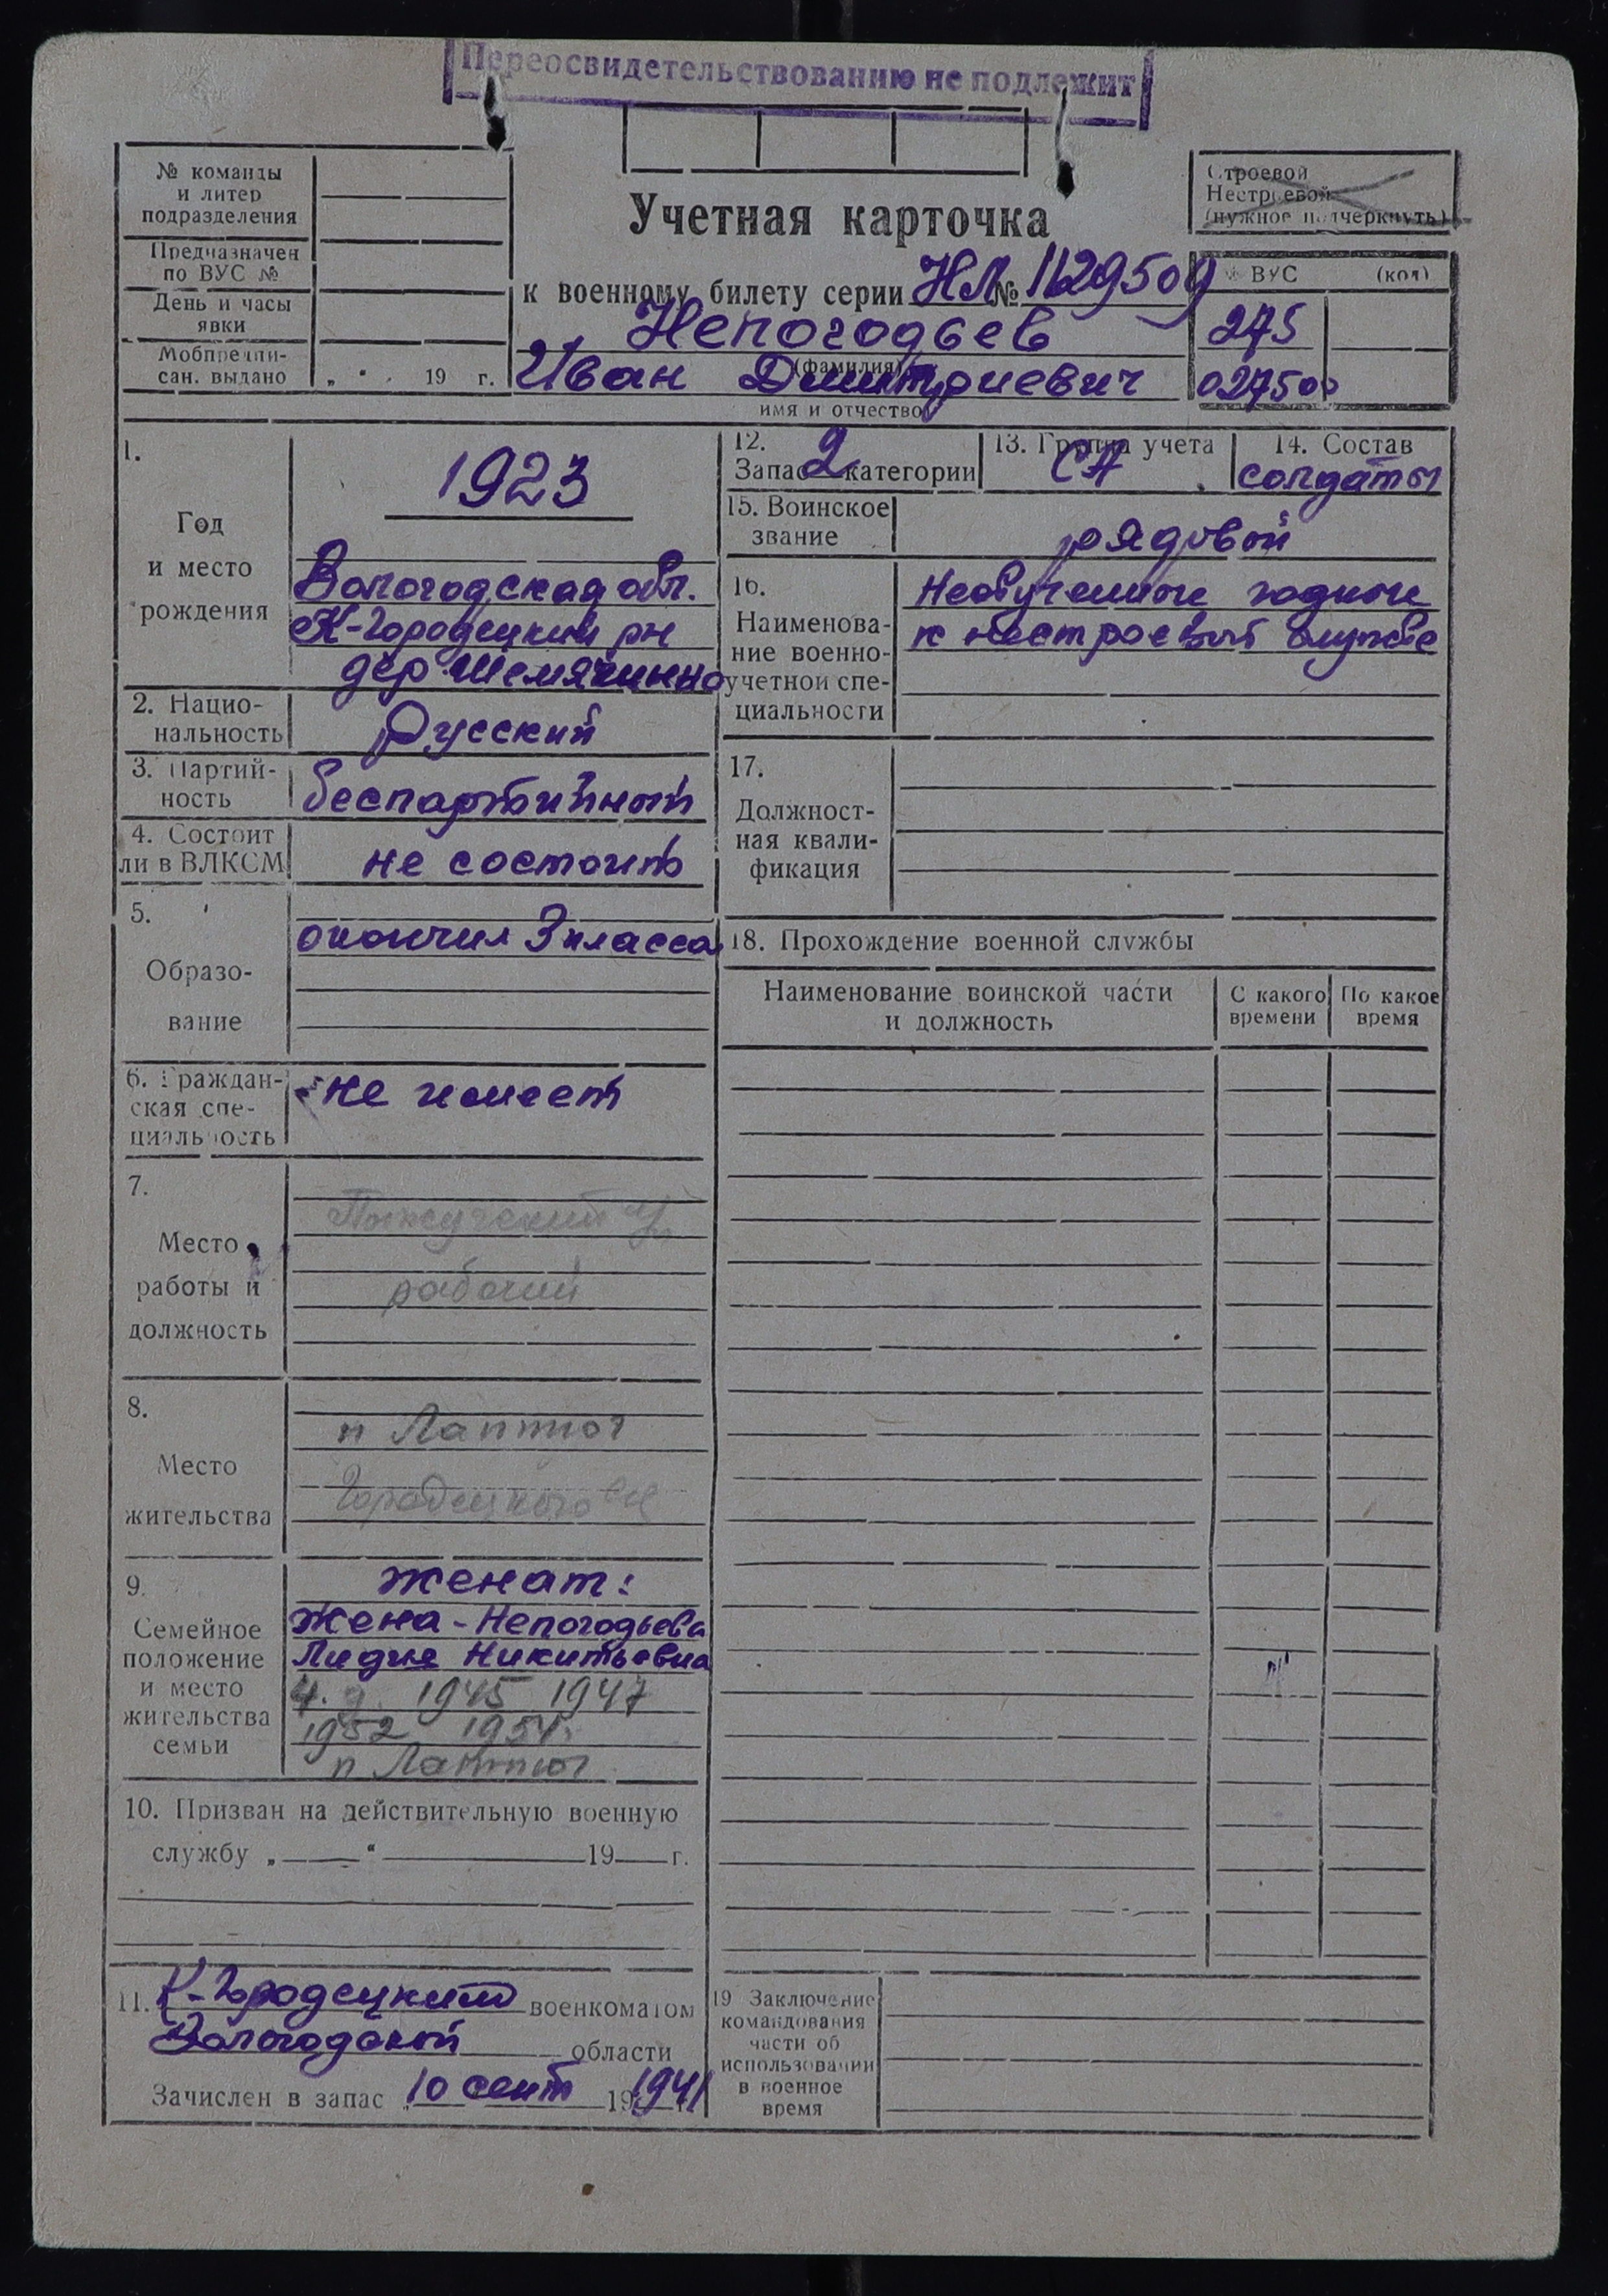 Переосвидетельствованию не подлежит
№ команды
и литер
подразделения
Предназначен
по ВУС №
День и часы
явки
Мобпредпи-
сан. выдано „ “ 19 г.
Учетная карточка
к военному билету серии НЛ № 1129509
Непогодьев
(фамилия)
Иван Дмитриевич
имя и отчество
Строевой
Нестроевой
(нужное подчеркнуть)
№ ВУС (код)
275
027500
1.
Год
и место
рождения
1923
Вологодская обл.
К-Городецкий рн
дер Шемячинно
2. Нацио-
нальность
Русский
3. Партий-
ность
беспартийный
4. Состоит
ли в ВЛКСМ
не состоит
5.
Образо-
вание
окончил 3 класса
6. Граждан-
ская спе-
циальность
не имеет
7.
Место
работы и
должность
рабочий
8.
Место
жительства
п Лаптюг
Городецкого рн
9.
Семейное
положение
и место
жительства
семьи
женат:
жена - Непогодьева
Лидия Никитьевна
4. д. 1945 1947
1952 1954
п Лаптюг
10. Призван на действительную военную
службу „ “ 19 г.
11. К-Городецким военкоматом
Вологодской области
Зачислен в запас 10 сент 19 1941 г.
12.
Запас 2 категории
13. Группа учета
СА
14. Состав
солдаты
15. Воинское
звание
рядовой
16.
Наименова-
ние военно-
учетной спе-
циальности
Необученные годные
к нестроевой службе
17.
Должност-
ная квали-
фикация
18. Прохождение военной службы
Наименование воинской части
и должность
С какого
времени
По какое
время
19 Заключение
командования
части об
использовании
в военное
время